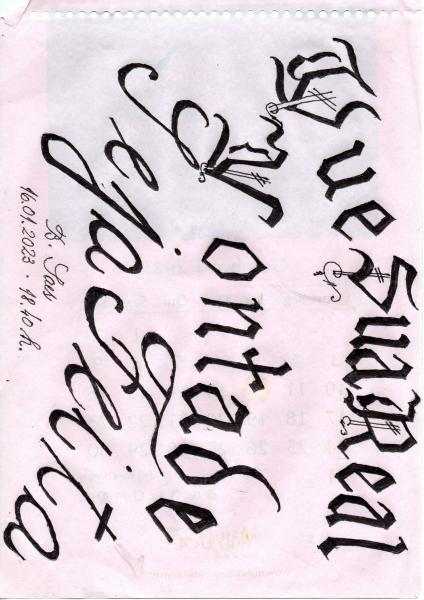 Que Sua Real
Vontade
Seja Feita
16.01.2023 · 18:40 h.